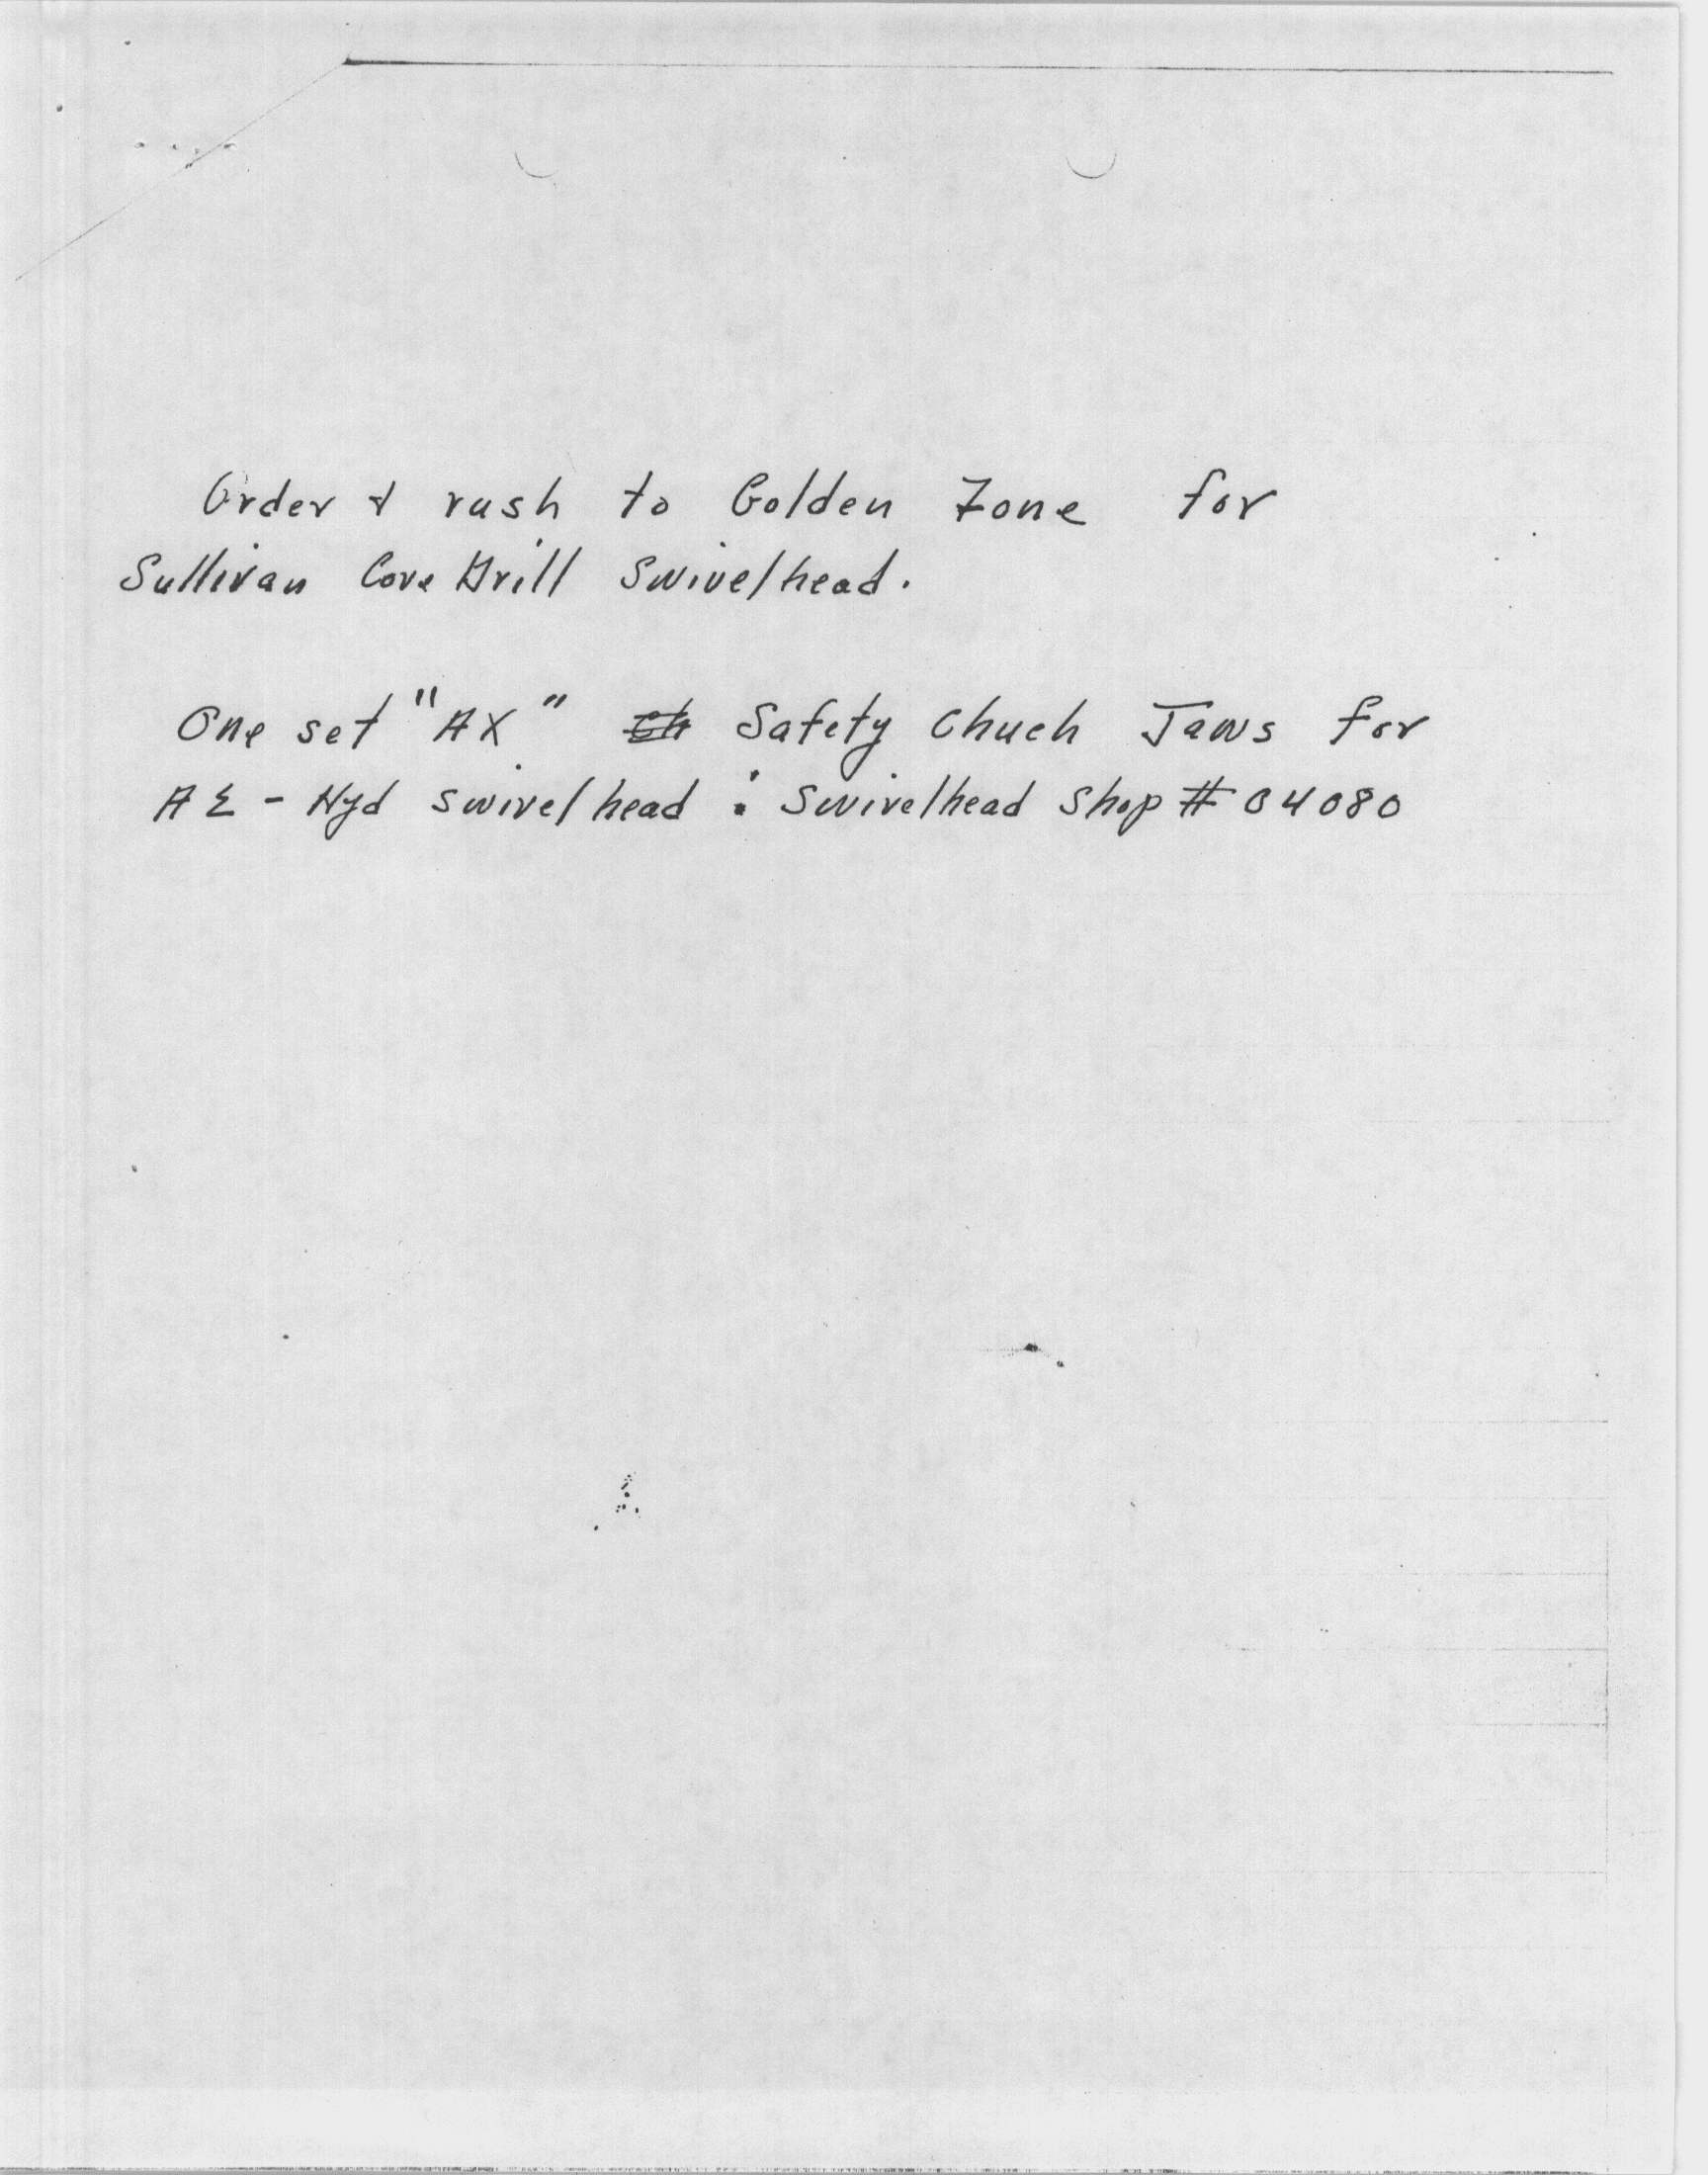 Order & rush to Golden Zone for
Sullivan Core Drill Swivelhead.
One set "AX" Safety Chuck Jaws for
AE - Hyd swivelhead : Swivelhead Shop # 04080